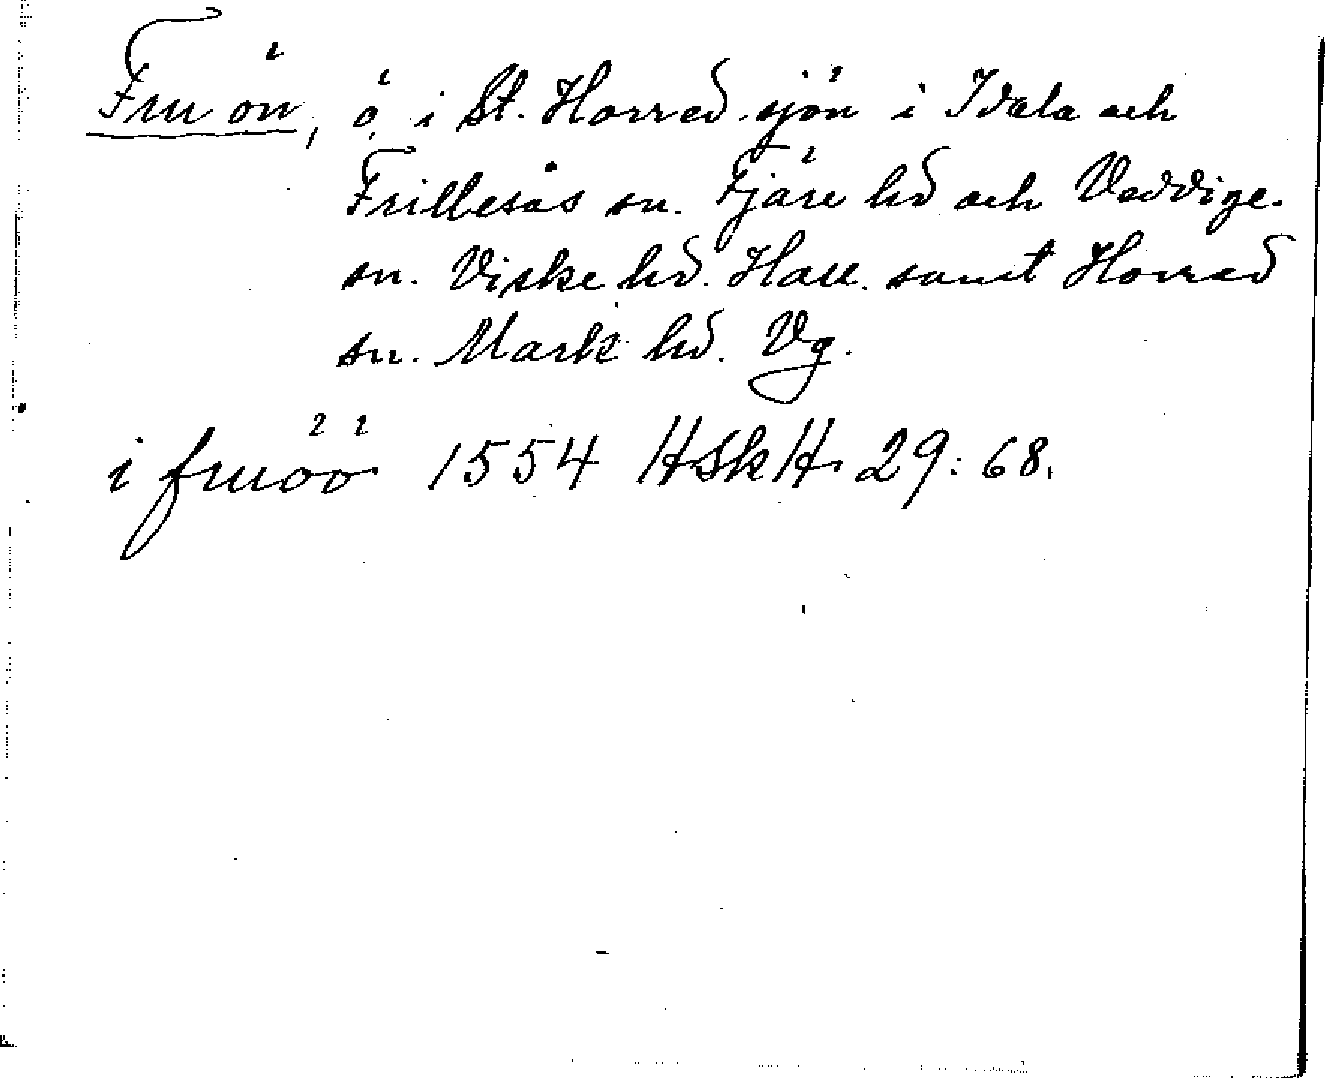 Fru ön, ö i St. Horred sjön i Idala och
Frillesås sn. Fjäre hd och Veddige
sn. Viske hd. Hall. samt Horred
sn. Mark hd. Vg.
i fruöö 1554 HSkH 29:68.